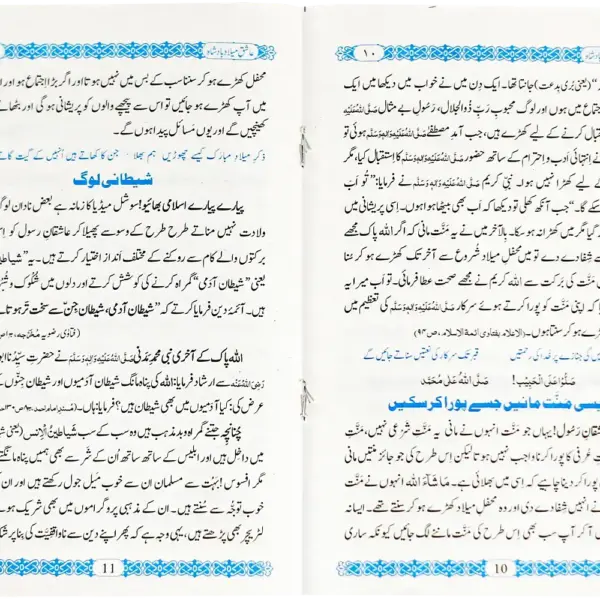 ١٠
”(یعنی بُری بدعت) جانتا تھا۔ ایک دِن میں نے خواب میں دیکھا میں ایک
اجتماع میں ہوں اور لوگ محبوبِ رَبِّ ذُوالجلال، رَسُولِ بے مثال صَلَّی اللہُ عَلَیْہِ وَاٰلِہٖ وَسَلَّم
قبال کرنے کے لیے کھڑے ہیں، جب آمدِ مصطفٰے صَلَّی اللہُ عَلَیْہِ وَاٰلِہٖ وَسَلَّم ہوئی تو
نے اِنتہائی اَدب و اِحترام کے ساتھ حضور صَلَّی اللہُ عَلَیْہِ وَاٰلِہٖ وَسَلَّم کا اِستقبال کیا، مگر
کے لیے کھڑا نہیں ہوا۔ نبیِّ کریم صَلَّی اللہُ عَلَیْہِ وَاٰلِہٖ وَسَلَّم نے فرمایا: ”تُو اَب
سکے گا۔“ جب آنکھ کھلی تو دیکھا کہ اَب بھی بیٹھا ہوا ہوں۔ اِسی پریشانی میں
گیا مگر میں کھڑا نہ ہو سکا۔ بالآخر میں نے یہ مَنَّت مانی کہ اگر اللہ پاک مجھے
شِفا دے دے تو میں محفلِ میلاد شُروع سے آخر تک کھڑے ہو کر سنا
مَنَّت کی بَرَکت سے اللہ کریم نے مجھے صحت عطا فرمائی۔ تو اَب میرا یہ
کہ اپنی مَنَّت کو پورا کرتے ہوئے سرکار صَلَّی اللہُ عَلَیْہِ وَاٰلِہٖ وَسَلَّم کی تعظیم میں
ڑے ہو کر سنتا ہوں۔ (الاعلام بفتاوی ائمة الاسلام، ص۹۴)
کی جنازے پر خدا کی رحمتیں قبر تک سرکار کی نعتیں سناتے جائیں گے
صَلُّوْا عَلَی الْحَبِیْب! صَلَّی اللہُ عَلٰی مُحَمَّد
یسی مَنَّت مانیں جسے پورا کر سکیں
شقانِ رَسُول! یہاں جو مَنَّت انہوں نے مانی یہ مَنَّتِ شَرعی نہیں، مَنَّتِ
عُرفی کا پورا کرنا واجب نہیں ہوتا لیکن اِس طرح کی جو جائز مَنتیں مانی
پورا کر دینا چاہیے کہ اِسی میں بھلائی ہے۔ مَا شَآءَ اللہ انہوں نے مَنَّت
نے انہیں شِفا دے دی اور وہ محفلِ میلاد کھڑے ہو کر سنتے تھے۔ ایسا نہ
آ کر آپ سب بھی اِس طرح کی مَنَّت ماننے لگ جائیں کیونکہ ساری
10
عاشقِ میلاد بادشاہ
محفل کھڑے ہو کر سننا سب کے بس میں نہیں ہوتا اور اگر بڑا اِجتماع ہو اور ا
میں آپ کھڑے ہو جائیں تو اس سے پیچھے والوں کو پریشانی ہو گی اور بٹھانے
کھینچیں گے اور یوں مَسائل پیدا ہوں گے۔
ذِکرِ میلادِ مبارک کیسے چھوڑیں ہم بھلا جن کا کھاتے ہیں اُنہیں کے گیت گاتے
شیطانی لوگ
پیارے پیارے اسلامی بھائیو! سوشل میڈیا کا زمانہ ہے بعض نادان لوگ
ولادت نہیں مناتے طرح طرح کے وسوسے پھیلا کر عاشقانِ رسول کو اِس
برکتوں والے کام سے روکنے کے مختلف اَنداز اختیار کرتے ہیں۔ یہ ”شیاطین
یعنی ”شیطان آدَمی“ گمراہ کرنے کی کوشش کرتے اور دلوں میں شکوک و شُبہ
ہیں۔ آئمۂ دین فرمایا کرتے کہ ”شیطان آدَمی، شیطان جِنّ سے سخت تر ہوتا ہے
(فتاویٰ رضویہ مُخَرَّجہ،
اللہ پاک کے آخری نبی محمدِ مَدَنی صَلَّی اللہُ عَلَیْہِ وَاٰلِہٖ وَسَلَّم نے حضرتِ سیِّدُنا ابو
رَضِیَ اللہُ عَنْہ سے ارشاد فرمایا: اللہ کی پناہ مانگ شیطان آدَمیوں اور شیطان جنّوں کے
عرض کی: کیا آدَمیوں میں بھی شیطان ہیں؟ فرمایا: ہاں۔ (مُسند امام احمد،
چُنانچہ جتنے گمراہ و بدمذہب ہیں وہ سب کے سب شَیاطِیْنُ الْاِنس (یعنی شیط
میں داخل ہیں اور اِبلیس کے ساتھ ساتھ اُن کے شَر سے بھی ہمیں پناہ مانگتے
مگر افسوس! بہُت سے مسلمان ان سے خوب میل جول رکھتے ہیں اور ان
خوب توجُّہ سے سُنتے ہیں۔ ان کے مذہبی پروگراموں میں بھی شریک ہوتے
لٹریچر بھی پڑھتے ہیں، یہی وجہ ہے کہ پھر اپنے دِین سے ناواقفیَّت کی بنا پر شک
11